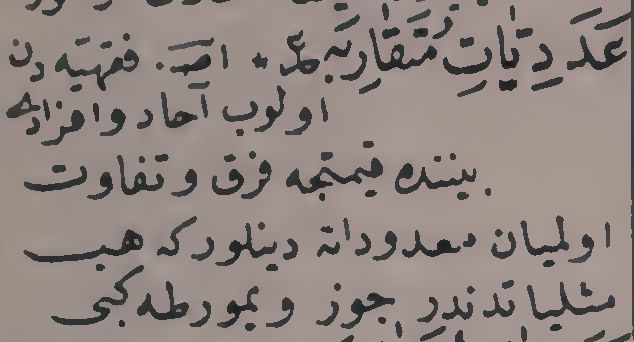 عَدَدِيَّاتِ مُتَقَارِبَه ع * اصط. فقهيّه دن
اولوب آحاد وافرادى
بيننده قيمتجه فرق و تفاوت
اولميان معدوداته دينلوركه هپ
مثلياتدندر جوز ويمورطه كبى